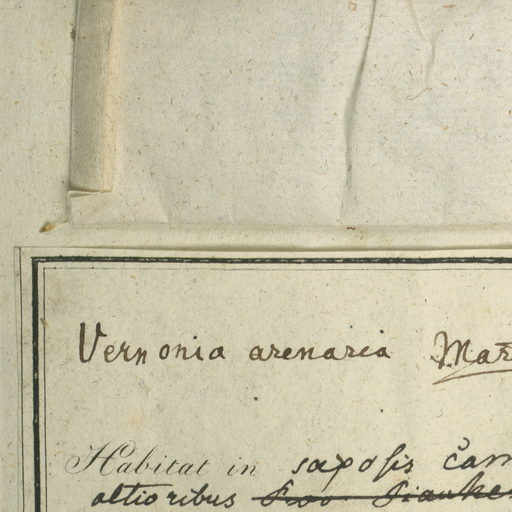 Vernonia arenaria Mar
Habitat in saxosis cam
altioribus